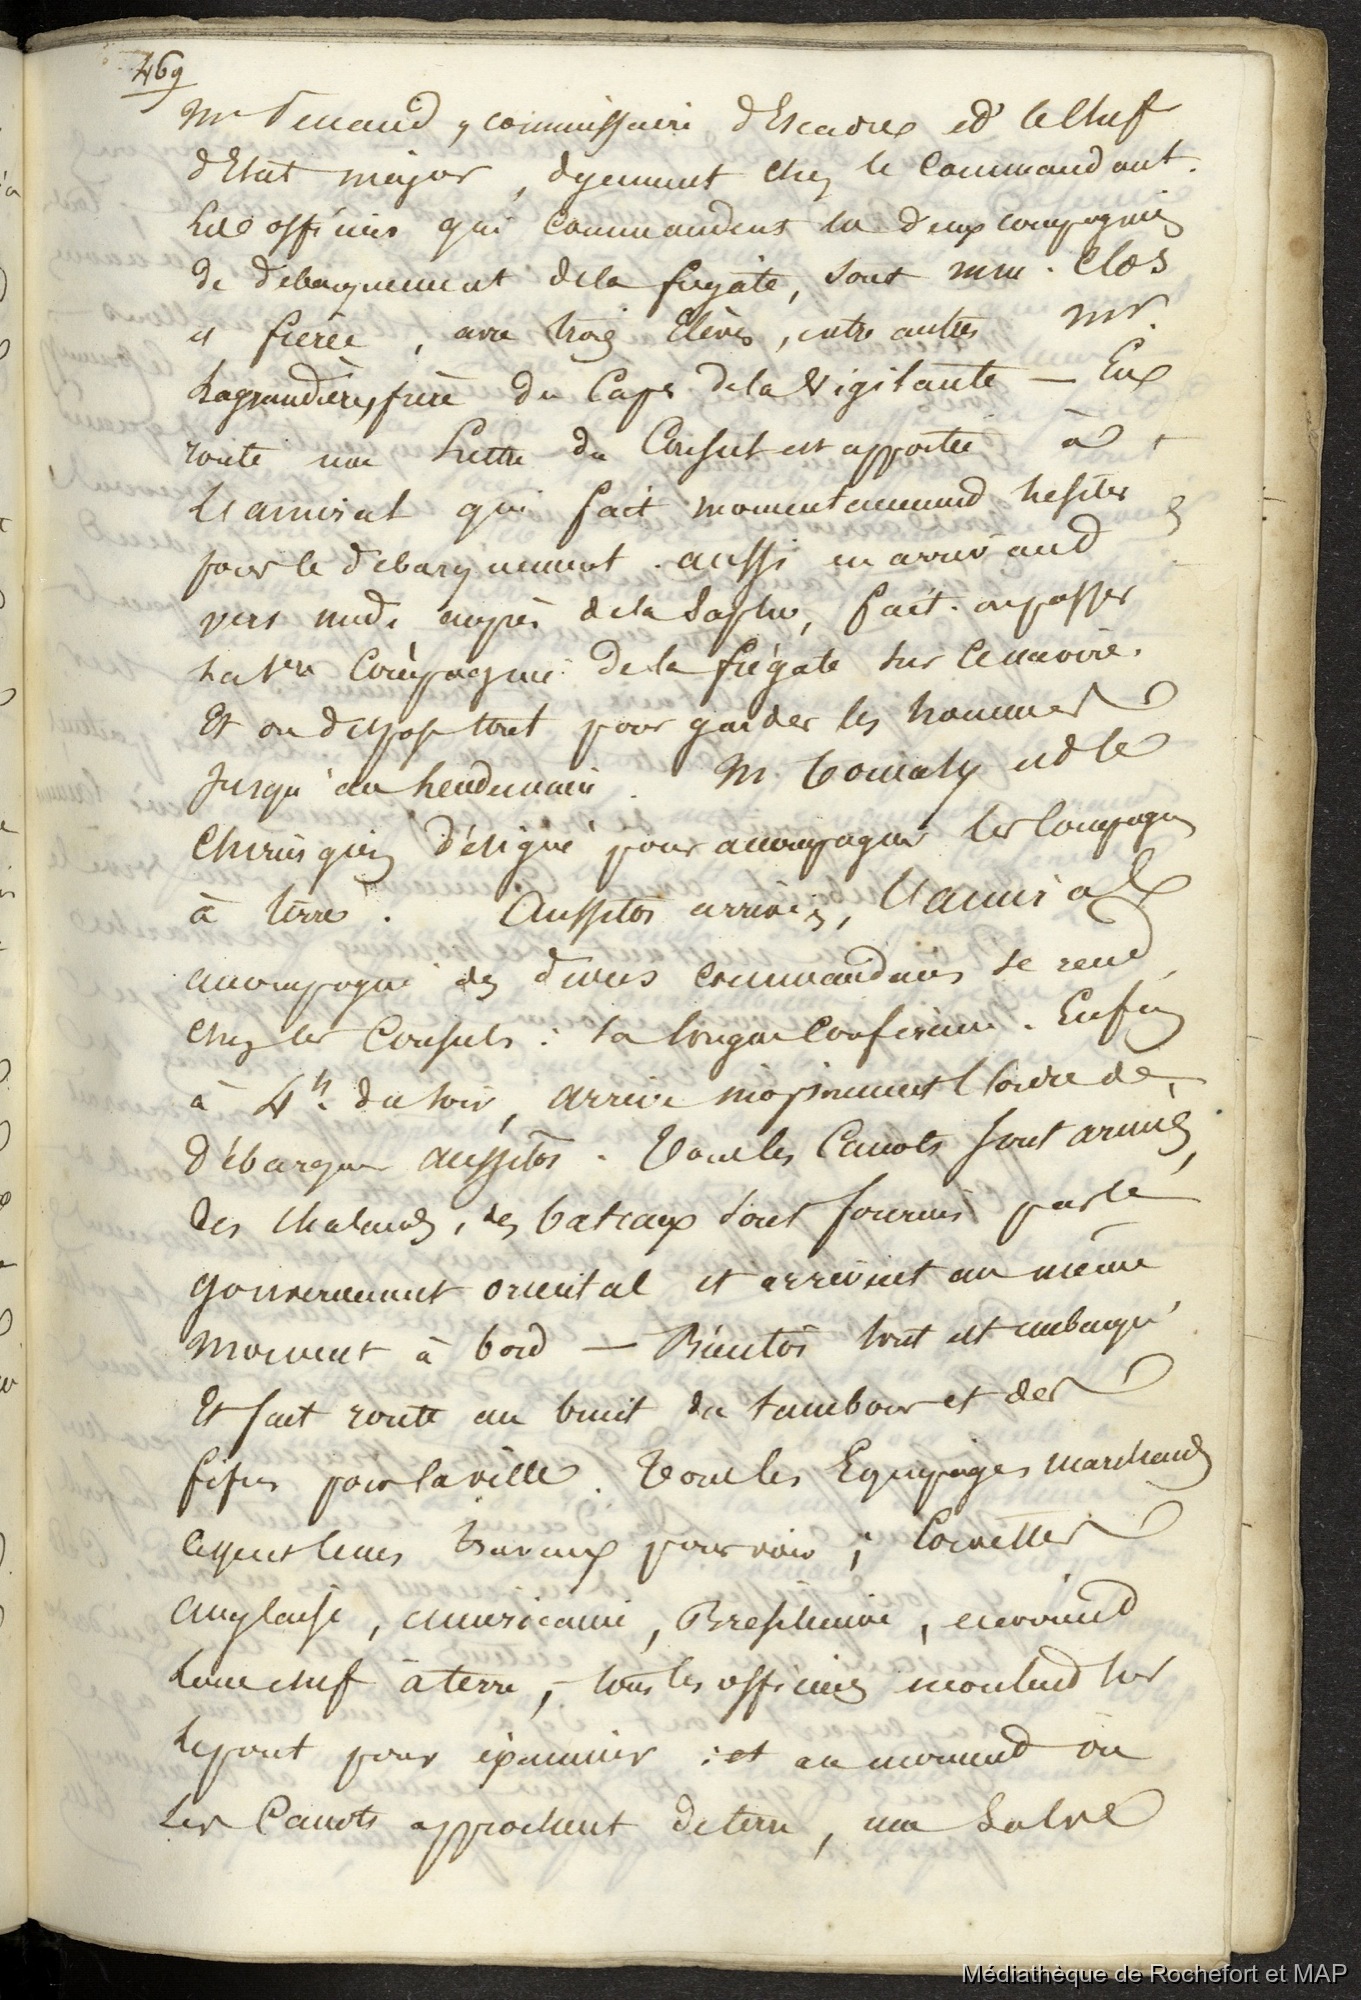 469
Mr Penaud, commissaire d'Escadre et le Chef
d'Etat major, dejeunent chez le Commandant.
Les officiers qui commandent les deux compagnies
de debarquement de la fregate, sont mm. Clos
et fierée, avec trois Elèves, entre autres Mr.
Lagrandière, frère du Cape de la Vigilante — En
route une Lettre du Consul est apportée à
L'amiral qui fait momentanement hesiter
pour le débarquement. aussi en arrivant
vers midi auprès de la Sapho, fait-on passer
La 1ere Compagnie de la frégate sur ce navire.
Et on dispose tout pour garder les hommes
Jusqu'au Lendemain. M. est le
Chirurgien désigné pour accompagner les Compagnies
à terre. Aussitot arrivés, L'amiral
accompagné des divers commandants se rend
chez les Consuls: la longue Conference. Enfin
à 4h. du soir, arrive inopinement l'ordre de
débarquer aussitôt. Tous les Canots sont armés,
des chalands, des bateaux sont fournis par le
gouvernement oriental et arrivent au même
moment à bord — Bientôt tout est embarqué
Et fait route au bruit du tambour et des
fifres pour la ville. Tous les Equipages marchands
cessent leurs travaux pour voir; Corvettes
anglaise, americaine, Bresilienne, envoient
Leur chef à terre, tous les officiers montent sur
Le pont pour examiner: et au moment où
Les Canots approchent de terre, une Salve
Médiathèque de Rochefort et MAP